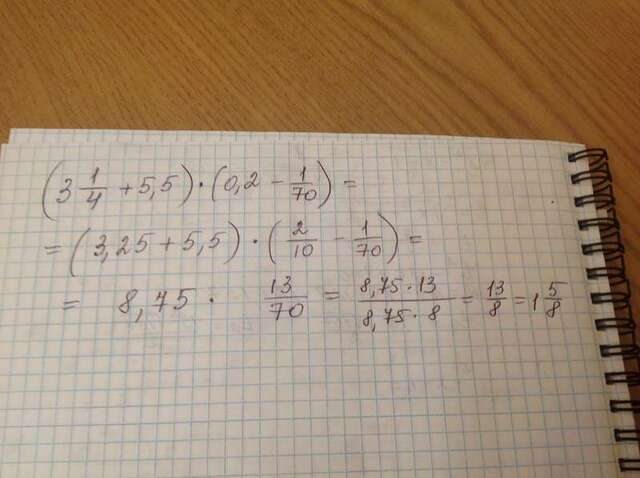 (3 1/4 + 5,5) · (0,2 − 1/70) =
= (3,25 + 5,5) · (2/10 − 1/70) =
= 8,75 · 13/70 = 8,75 · 13/8,75 · 8 = 13/8 = 1 5/8